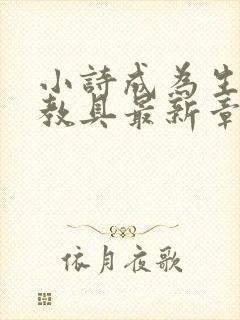 小詩成為生
教具最新章
依月夜歌